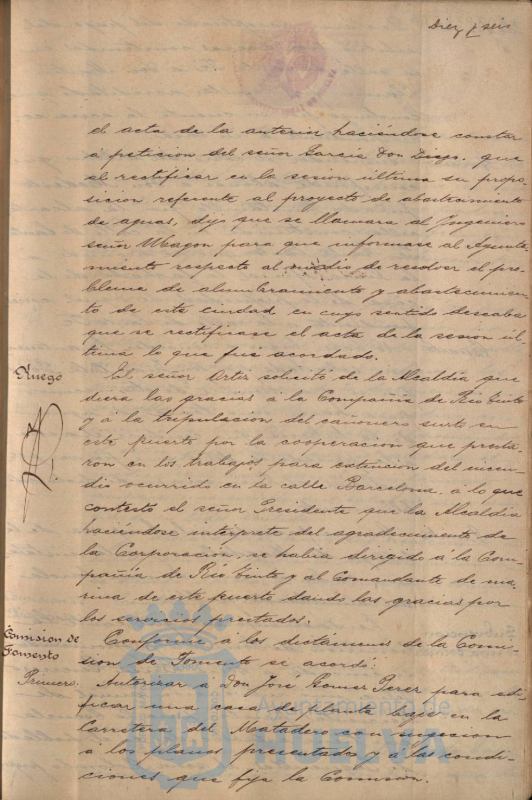 Diez y seis
el acta de la anterior haciéndose constar
á peticion del señor García Don Diego, que
al rectificar en la sesion última su propo-
sicion referente al proyecto de abastecimiento
de aguas, dijo que se llamara al Ingeniero
señor para que informase al Ayunta-
miento respecto al medio de resolver el pro-
blema de alumbramiento y abastecimien-
to de esta ciudad en cuyo sentido deseaba
que se rectificase el acta de la sesion úl-
tima lo que fué acordado.
Ruego
El señor solicitó de la Alcaldía que
diera las gracias á la Compañía de Rio Tinto
y á la tripulacion del cañonero surto en
este puerto por la cooperacion que presta-
ron en los trabajos para extincion del incen-
dio ocurrido en la calle Barcelona, á lo que
contestó el señor Presidente que la Alcaldía
haciéndose intérprete del agradecimiento de
la Corporación, se había dirigido á la Com-
pañía de Rio Tinto y al Comandante de ma-
rina de este puerto dando las gracias por
los servicios prestados.
Comision de
Fomento
Conforme á los dictámenes de la Comi-
sion de Fomento se acordó:
Primero:
Autorizar a Don José Gomez Perez para edi-
ficar una casa de planta baja en la
Carretera del Matadero con sugecion
á los planos presentados y á las condi-
ciones que fija la Comision.
Ayuntamiento de
HUELVA